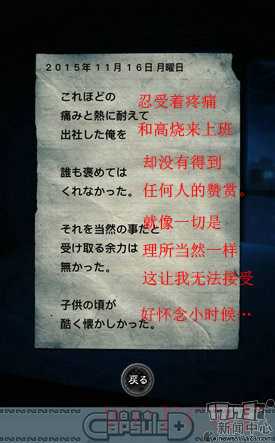 2015年11月16日月曜日
これほどの
痛みと熱に耐えて
出社した俺を
忍受着疼痛
和高烧来上班
誰も褒めては
くれなかった。
却没有得到
任何人的赞赏。
それを当然の事だと
受け取る余力は
無かった。
就像一切是
理所当然一样
这让我无法接受
子供の頃が
酷く懐かしかった。
好怀念小时候…
戻る
CAPSULE+
17173
新闻中心